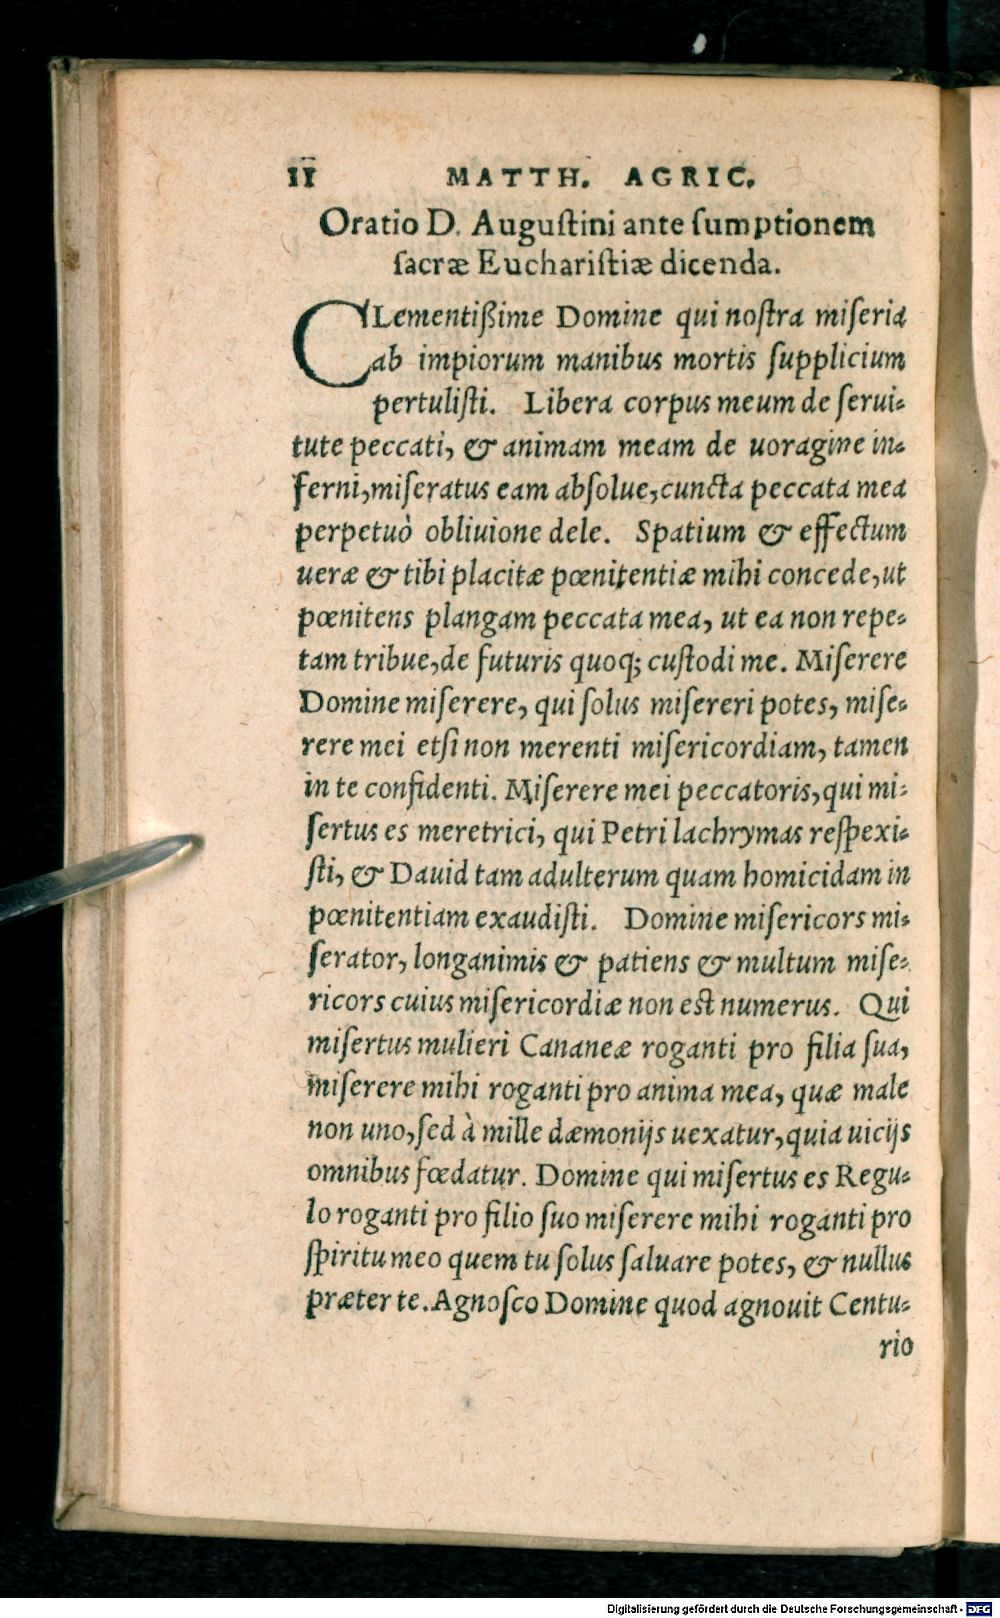 II MATTH. AGRIC.
Oratio D. Auguſtini ante ſumptionem
ſacræ Euchariſtiæ dicenda.
CLementißime Domine qui noſtra miſeria
ab impiorum manibus mortis ſupplicium
pertuliſti. Libera corpus meum de ſerui-
tute peccati, & animam meam de uoragine in-
ferni, miſeratus eam abſolue, cuncta peccata mea
perpetuò obliuione dele. Spatium & effectum
ueræ & tibi placitæ pœnitentiæ mihi concede, ut
pœnitens plangam peccata mea, ut ea non repe-
tam tribue, de futuris quoq; cuſtodi me. Miſerere
Domine miſerere, qui ſolus miſereri potes, miſe-
rere mei etſi non merenti miſericordiam, tamen
in te confidenti. Miſerere mei peccatoris, qui mi-
ſertus es meretrici, qui Petri lachrymas reſpexi-
ſti, & Dauid tam adulterum quam homicidam in
pœnitentiam exaudiſti. Domine miſericors mi-
ſerator, longanimis & patiens & multum miſe-
ricors cuius miſericordiæ non eſt numerus. Qui
miſertus mulieri Cananeæ roganti pro filia ſua,
miſerere mihi roganti pro anima mea, quæ male
non uno, ſed à mille dæmonijs uexatur, quia uicijs
omnibus fœdatur. Domine qui miſertus es Regu-
lo roganti pro filio ſuo miſerere mihi roganti pro
ſpiritu meo quem tu ſolus ſaluare potes, & nullus
præter te. Agnoſco Domine quod agnouit Centu-
rio
Digitalisierung gefördert durch die Deutsche Forschungsgemeinschaft - DFG